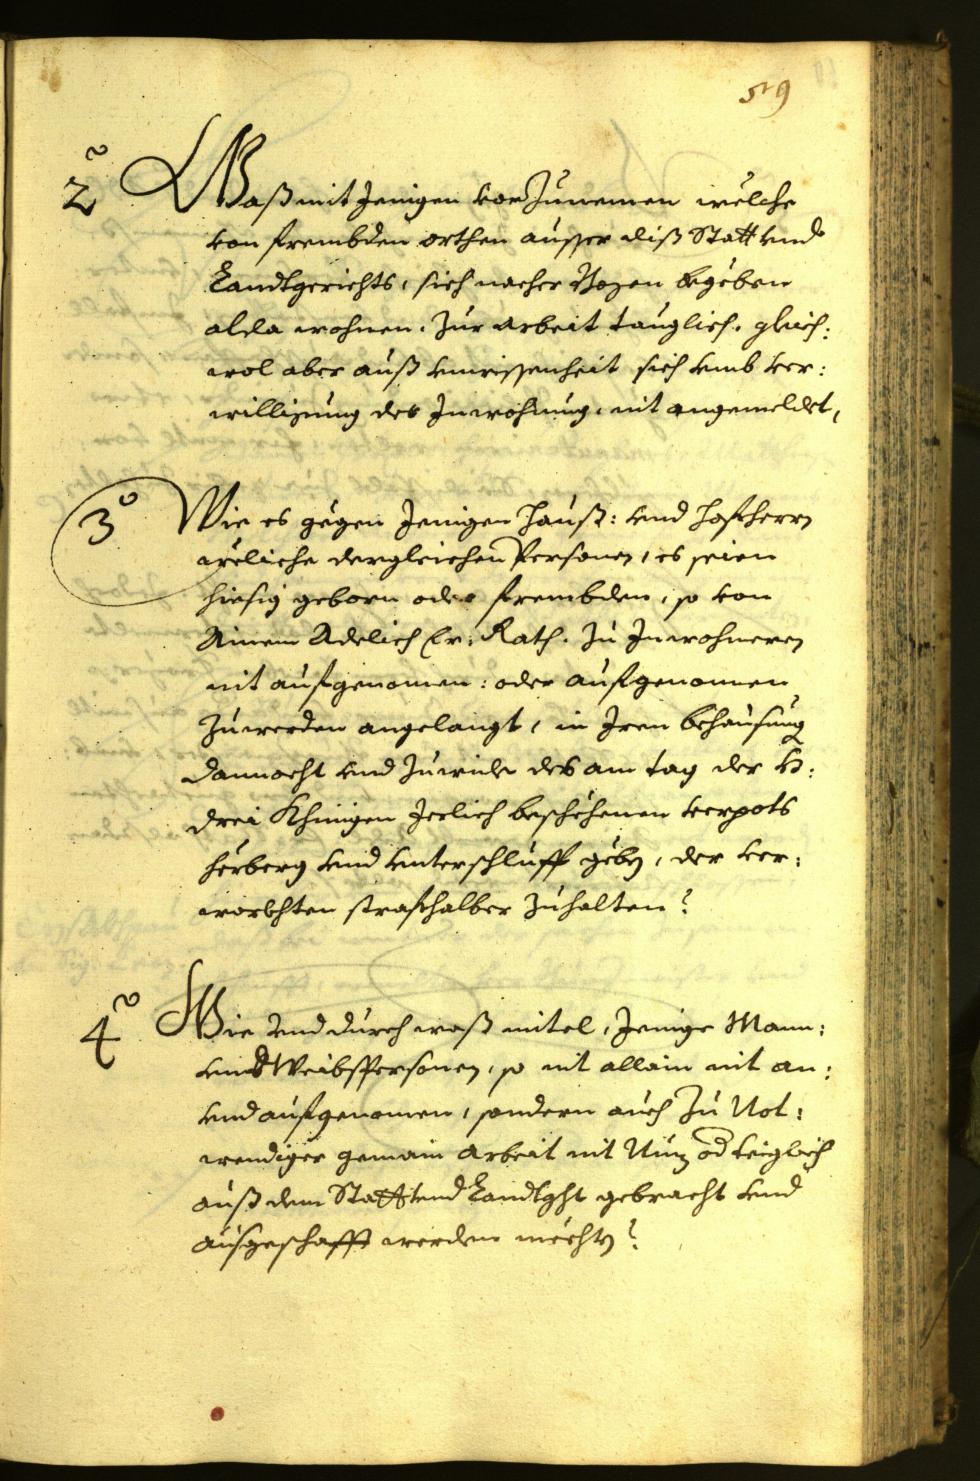 59
2o Waß mit Jenigen vorzunemen welche
von frembden orthen ausser diß Statt vnd
Landtgerichts, sich nacher Bozen begeben
alda wohnen. Zur arbeit tauglich. gleich:
wol aber auß vnwissenheit sich vmb ver:
willigung der Inwohnung, nit angemeldet,
3o Wie es gegen Jenigen Hauß: vnd hofherrn
weliche dergleichen Personen, es seien
hiesig geborn oder frembden, so von
Ainem Adelich Er: Rath. zu Inwohneren
nit aufgenomen: oder aufgenomen
zuwerden angelangt, in Jren behausung
dannocht vnd zuwider des am tag der H:
drei Khinigen Jerlich beschehenen verpots
herberg vnd vnterschluff geben, der ver:
worchten strafhalber zuhalten?
4o Wie vnd durch waß mitel, Jenige Mann:
vnd Weibspersonen, so nit allain nit an:
vnd aufgenomen, sondern auch zu Not:
wendiger gemain arbeit nit Nuz od teiglich
auß dem Statt vnd Landtght gebracht vnd
ausgeschafft werden mechten?